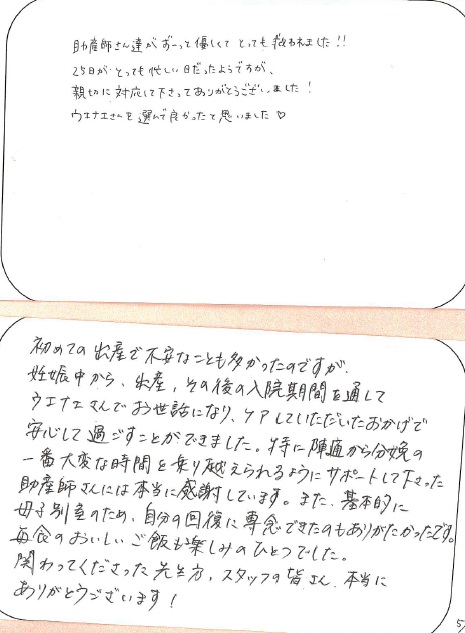 助産師さん達がずーっと優しくてとっても救われました!!
25日がとっても忙しい日だったようですが、
親切に対応して下さってありがとうございました!
ウエナエさんを選んで良かったと思いました♡
初めての出産で不安なことも多かったのですが、
妊娠中から、出産、その後の入院期間を通して
ウエナエさんでお世話になり、ケアしていただいたおかげで
安心して過ごすことができました。特に陣痛から分娩の
一番大変な時間を乗り越えられるようにサポートして下さった
助産師さんには本当に感謝しています。また、基本的に
母子別室のため、自分の回復に専念できたのもありがたかったです。
毎食のおいしいご飯も楽しみのひとつでした。
関わってくださった先生方、スタッフの皆さん、本当に
ありがとうございます!